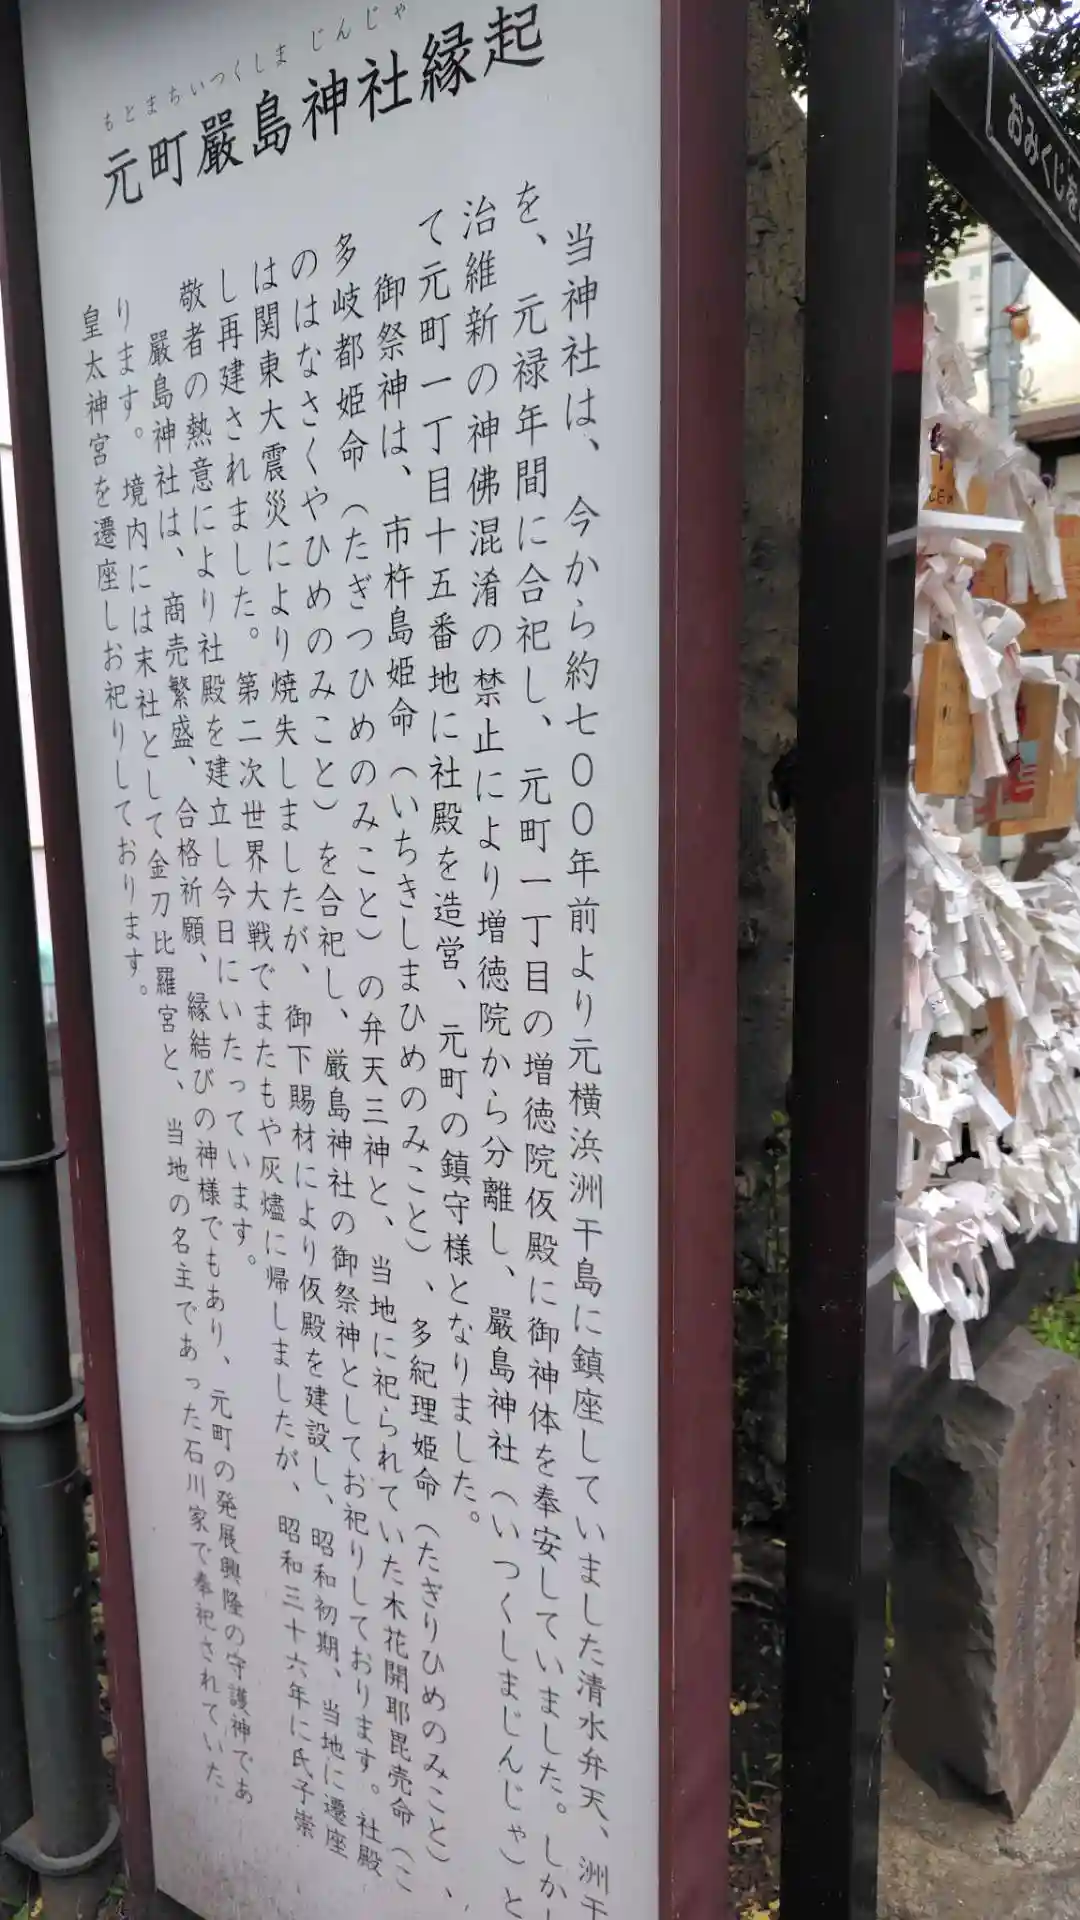 もとまちいつくしま じんじゃ
元町嚴島神社縁起
当神社は、今から約七〇〇年前より元横浜洲干島に鎮座していました清水弁天、洲干
を、元禄年間に合祀し、元町一丁目の増徳院仮殿に御神体を奉安していました。しか
治維新の神佛混淆の禁止により増徳院から分離し、嚴島神社（いつくしまじんじゃ）と
て元町一丁目十五番地に社殿を造営、元町の鎮守様となりました。
御祭神は、市杵島姫命（いちきしまひめのみこと）、多紀理姫命（たぎりひめのみこと）、
多岐都姫命（たぎつひめのみこと）の弁天三神と、当地に祀られていた木花開耶毘売命（こ
のはなさくやひめのみこと）を合祀し、厳島神社の御祭神としてお祀りしております。社殿
は関東大震災により焼失しましたが、御下賜材により仮殿を建設し、昭和初期、当地に遷座
し再建されました。第二次世界大戦でまたもや灰燼に帰しましたが、昭和三十六年に氏子崇
敬者の熱意により社殿を建立し今日にいたっています。
嚴島神社は、商売繁盛、合格祈願、縁結びの神様でもあり、元町の発展興隆の守護神であ
ります。境内には末社として金刀比羅宮と、当地の名主であった石川家で奉祀されていた
皇太神宮を遷座しお祀りしております。
おみくじを